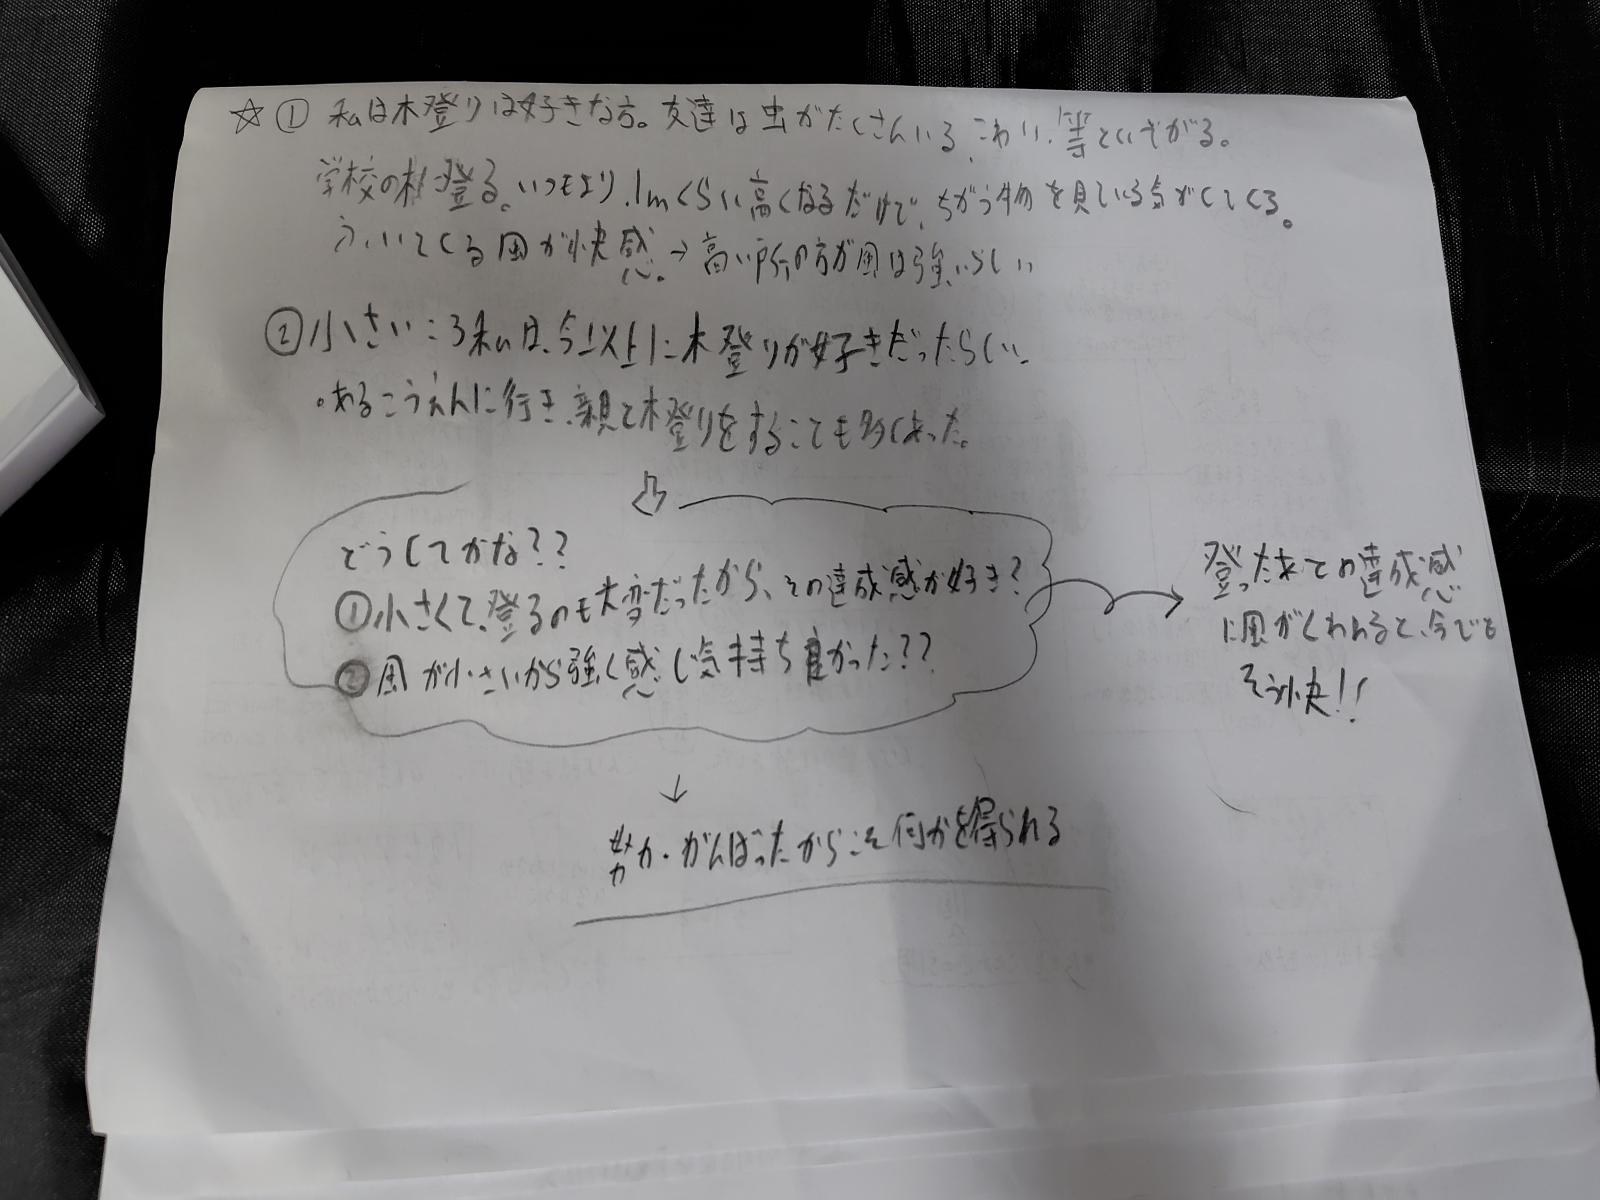 ☆① 私は木登りは好きな方。友達は虫がたくさんいる、こわい、等といやがる。
学校の木に登る。いつもより、1mくらい高くなるだけで、ちがう物を見ている気がしてくる。
ふいてくる風が快感。→高い所の方が風は強いらしい
②小さいころ私は、今以上に木登りが好きだったらしい。
。あるこうえんに行き、親と木登りをすることも多くあった。
どうしてかな??
①小さくて、登るのも大変だったから、その達成感が好き?
②風が小さいから強く感じ気持ち良かった??
登ったあとの達成感
に風がくわわると、今でも
そう快!!
努力・がんばったからこそ何かを得られる